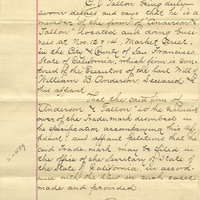 C. J. Tallon being duly
sworn deposes and says that he is a
member of the firm of "Anderson &
Tallon" located and doing busi-
ness at Nos. 12 & 14, Market Street,
in the City & County of San Francisco
State of California, which firm is com-
posed of the Executors of the last Will of
William B. Anderson Deceased &
this affiant.
That the said firm of
"Anderson & Tallon" is the exclusive
owner of the Trade mark described in
the classification accompanying this Af-
fidavit, and affiant petitions that the
said Trade mark may be filed in
the office of the Secretary of State of
the State of California, in accord-
ance with the law in such cases
made and provided